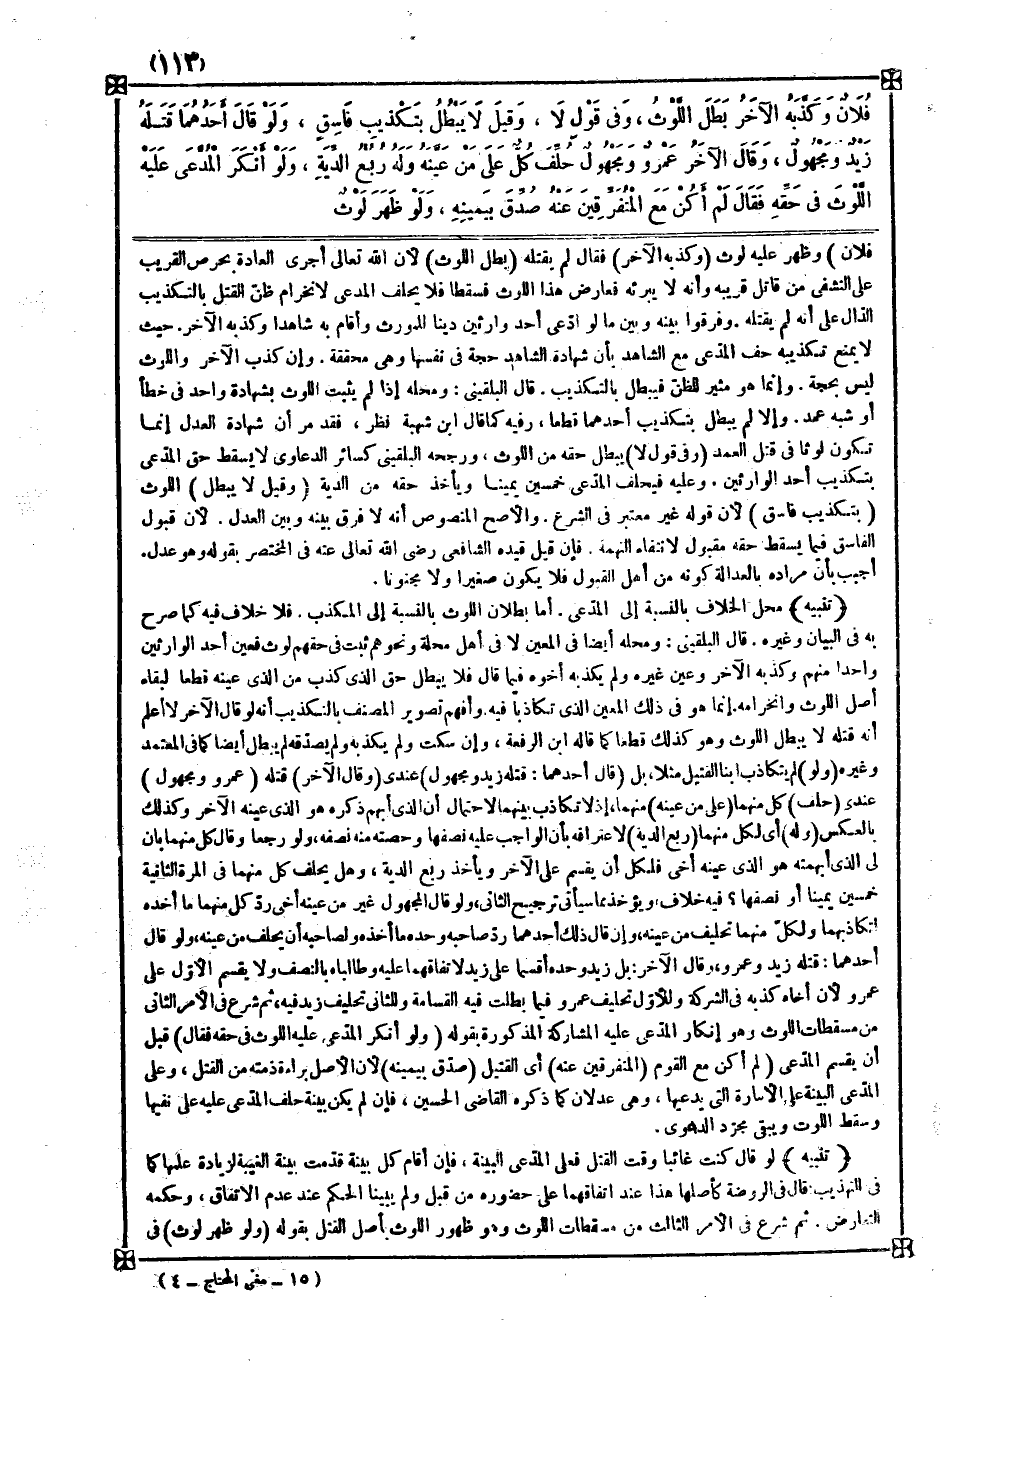 (١١٣)
فُلَانٌ وَكَذَّبَهُ الْآخَرُ بَطَلَ اللَّوْثُ ، وَفِى قَوْلٍ لَا ، وَقِيلَ لَا يَبْطُلُ بِتَكْذِيبِ فَاسِقٍ ، وَلَوْ قَالَ أَحَدُهُمَا قَتَلَهُ
زَيْدٌ وَمَجْهُولٌ ، وَقَالَ الْآخَرُ عَمْرٌو وَمَجْهُولٌ حَلَفَ كُلٌّ عَلَى مَنْ عَيَّنَهُ وَلَهُ رُبُعُ الدِّيَةِ ، وَلَوْ أَنْكَرَ الْمُدَّعَى عَلَيْهِ
اللَّوْثَ فِى حَقِّهِ فَقَالَ لَمْ أَكُنْ مَعَ الْمُتَفَرِّقِينَ عَنْهُ صُدِّقَ بِيَمِينِهِ ، وَلَوْ ظَهَرَ لَوْثٌ
فلان ) وظهر عليه لوث (وكذبه الآخر) فقال لم يقتله (بطل اللوث) لأن الله تعالى أجرى العادة بحرص القريب
على التشفى من قاتل قريبه وأنه لا يبرئه فعارض هذا اللوث فسقطا فلا يحلف المدعى لانخرام ظنّ القتل بالتكذيب
الدّال على أنه لم يقتله . وفرقوا بينه وبين ما لو ادّعى أحد وارثين دينا للمورث وأقام به شاهدا وكذبه الآخر . حيث
لا يمنع تكذيبه حلف المدّعى مع الشاهد بأن شهادة الشاهد حجة فى نفسها وهى محققة . وإن كذب الآخر واللوث
ليس بحجة . وإنما هو مثير للظنّ فيبطل بالتكذيب . قال البلقينى : ومحله إذا لم يثبت اللوث بشهادة واحد فى خطأ
أو شبه عمد . وإلا لم يبطل بتكذيب أحدهما قطعا ، وفيه كما قال ابن شهبة نظر ، فقد مر أن شهادة العدل إنما
تكون لوثا فى قتل العمد (وفى قول لا) يبطل حقه من اللوث ، ورجحه البلقينى كسائر الدعاوى لا يسقط حق المدّعى
بتكذيب أحد الوارثين . وعليه فيحلف المدّعى خمسين يمينا ويأخذ حقه من الدية ( وقيل لا يبطل ) اللوث
( بتكذيب فاسق ) لأن قوله غير معتبر فى الشرع . والأصح المنصوص أنه لا فرق بينه وبين العدل . لأن قبول
الفاسق فيما يسقط حقه مقبول لانتفاء التهمة . فإن قيل قيده الشافعى رضى الله تعالى عنه فى المختصر بقوله وهو عدل .
أجيب بأن مراده بالعدالة كونه من أهل القبول فلا يكون صغيرا ولا مجنونا .
﴿ تنبيه ﴾ محل الخلاف بالنسبة إلى المدّعى . أما بطلان اللوث بالنسبة إلى المكذب . فلا خلاف فيه كما صرح
به فى البيان وغيره . قال البلقينى : ومحله أيضا فى المعين لا فى أهل محلة ونحوهم ثبت فى حقهم لوث فعين أحد الوارثين
واحدا منهم وكذبه الآخر وعين غيره ولم يكذبه أخوه فيما قال فلا يبطل حق الذى كذب من الذى عينه قطعا لبقاء
أصل اللوث وانخرامه . إنما هو فى ذلك المعين الذى تكاذبا فيه . وأفهم تصوير المصنف بالتكذيب أنه لو قال الآخر لا أعلم
أنه قتله لا يبطل اللوث وهو كذلك قطعا كما قاله ابن الرفعة ، وإن سكت ولم يكذبه ولم يصدّقه لم يبطل أيضا كما فى المعتمد
وغيره (ولو) لم يتكاذب ابنا القتيل مثلا ، بل (قال أحدهما : قتله زيد ومجهول) عندى (وقال الآخر) قتله ( عمرو ومجهول )
عندى (حلف) كل منهما (على من عينه) منهما ، إذ لا تكاذب بينهما لاحتمال أن الذى أبهم ذكره هو الذى عينه الآخر وكذلك
بالعكس (وله) أى لكل منهما (ربع الدية) لاعترافه بأن الواجب عليه نصفها وحصته منه نصفه ، ولو رجعا وقال كل منهما بان
لى الذى أبهمته هو الذى عينه أخى فلكل أن يقسم على الآخر ويأخذ ربع الدية ، وهل يحلف كل منهما فى المرة الثانية
خمسين يمينا أو نصفها ؟ فيه خلاف ، ويؤخذ مما سيأتى ترجيح الثانى ، ولو قال المجهول غير من عينه أخى ردّ كل منهما ما أخذه
لتكاذبهما ولكلّ منهما تحليف من عينه ، وإن قال ذلك أحدهما ردّ صاحبه وحده ما أخذه ولصاحبه أن يحلف من عينه ، ولو قال
أحدهما : قتله زيد وعمرو ، وقال الآخر : بل زيد وحده أقسما على زيد لاتفاقهما عليه وطالباه بالنصف ولا يقسم الأوّل على
عمرو لأن أخاه كذبه فى الشركة وللأوّل تحليف عمرو فيما بطلت فيه القسامة وللثانى تحليف زيد فيه ، ثم شرع فى الأمر الثانى
من مسقطات اللوث وهو إنكار المدّعى عليه المشاركة المذكورة بقوله ( ولو أنكر المدّعى عليه اللوث فى حقه فقال) قبل
أن يقسم المدّعى ( لم أكن مع القوم (المتفرقين عنه) أى القتيل (صدّق بيمينه) لأن الأصل براءة ذمته من القتل ، وعلى
المدّعى البينة على الأمارة التى يدعيها ، وهى عدلان كما ذكره القاضى الحسين ، فإن لم يكن بينة حلف المدّعى عليه على نفيها
وسقط اللوث ويبقى مجرّد الدعوى .
﴿ تنبيه ﴾ لو قال كنت غائبا وقت القتل فعلى المدّعى البينة ، فإن أقام كل بينة قدمت بينة الغيبة لزيادة علمها كما
فى التهذيب : قال فى الروضة كأصلها هذا عند اتفاقهما على حضوره من قبل ولم يبينا الحكم عند عدم الاتفاق ، وحكمه
التعارض . ثم شرع فى الأمر الثالث من مسقطات اللوث وهو ظهور اللوث بأصل القتل بقوله (ولو ظهر لوث) فى
( ١٥ - مغنى المحتاج - ٤ )